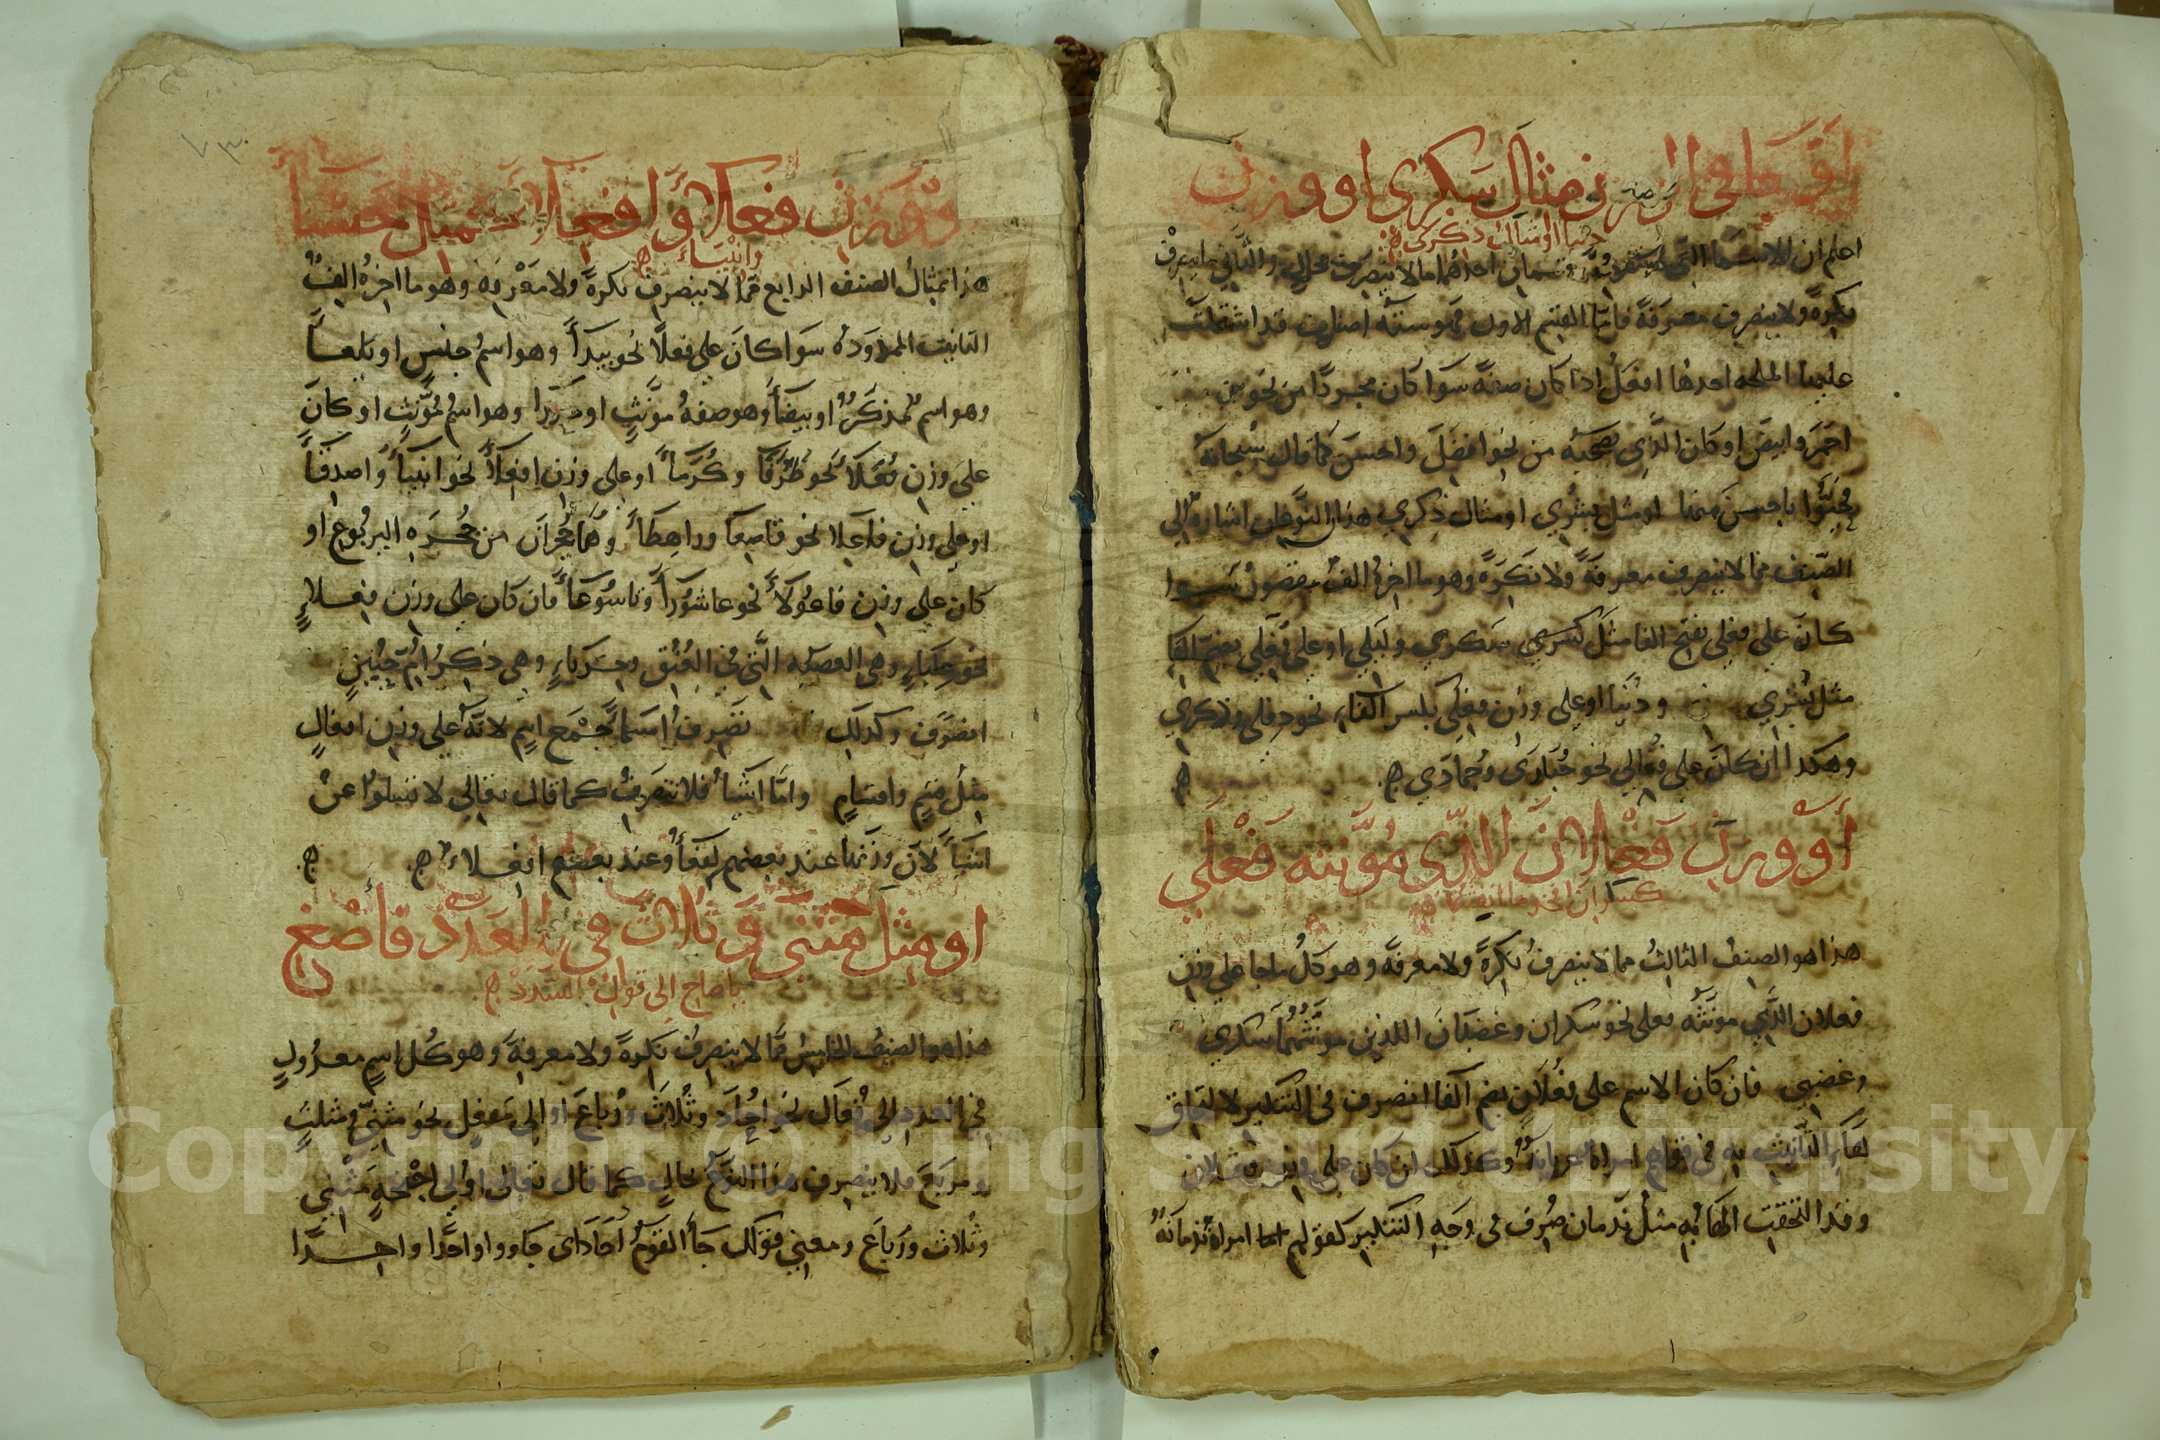 او جا في الوزن مثال سكري او وزن
دنيا او مثال ذكري
اعلم ان للاسما التي لا تنصرف قسمان احدهما ما لا ينصرف بحال والثاني ما ينصرف
نكرة ولا ينصرف معرفة فاما القسم الاول فهو ستة اصناف قد اشتملت
عليها الملحه احدها افعل اذا كان صفة سوا كان مجردا من نحو
احمر وابيض او كان الذي تصحبه من نحو افضل واحسن كما قال سبحانه
فحيوا باحسن منها او مثل بشري او مثال ذكري هذان النوعان اشارة الي
الصنف مما لا ينصرف معرفة ولا نكرة وهو ما اخره الف مقصور سوا
كان علي فعلي بفتح الفا مثل كسري سكري وليلي او علي فعلي بضم الفا
مثل بشري ودنيا او علي وزن فعلي بكسر الفاء نحو دفلي وذكري
وهكذا ان كان علي فعالي نحو حباري وجمادي
او وزن فعلان الذي مؤنثه فعلي
كسكران فخذ ما انفثه
هذا هو الصنف الثالث مما لا ينصرف نكرة ولا معرفة وهو كل ما جا علي وزن
فعلان الذي مونثه فعلي نحو سكران وغضبان اللذين مونثهما سكري
وغضبي فان كان الاسم علي فعلان بضم الفا انصرف في التنكير لالحاق
هاء التانيث به في قولهم امراة عريانة وكذلك ان كان علي وزن فعلان
وقد التحقت الهاء به مثل ندمان صرف في وجه التنكير كقولهم امراة ندمانة
ووزن فعلاء وافعلاء كمثل حسناء
وانبياء
هذا مثال الصنف الرابع مما لا ينصرف نكرة ولا معرفه وهو ما اخره الف
التانيث الممدوده سوا كان علي فعلاء نحو بيداء وهو اسم جنس او بلعاء
وهو اسم لمذكر او بيضاء وهو صفه مونث او وهو اسم لمونث او كان
علي وزن فعلاء نحو ظرفا وكرماء او علي وزن افعلاء نحو انبياء واصدقاء
او علي وزن فاعلا نحو قاصعا وراهطاء وهما جحران من جحره اليربوع او
كان علي وزن فاعولاء نحو عاشوراء وتاسوعاء فان كان علي وزن فعلاء
نحو علباء وهي العصبه التي في العنق وحرباء وهي ذكر ام حبين
انصرف وكذلك تصرف اسما بجمع اسم لانه علي وزن افعال
مثل قسم واقسام واما اشياء فلا تنصرف كما قال تعالي لا تسالوا عن
اشياء لان وزنها عند بعضهم لفعاء وعند بعضهم افعلاء
او مثل مثني وثلاث في العدد فاصغ
يا صاح الي قول السدد
هذا هو الصنف الخامس مما لا ينصرف نكرة ولا معرفة وهو كل اسم معدول
في العدد الي فعال نحو احاد وثلاث ورباع او الي مفعل نحو مثني ومثلث
ومربع فلا ينصرف هذا النوع بحال كما قال تعالي اولي اجنحة مثني
وثلاث ورباع ومعني قولك جاء القوم احاد اي جاووا واحدا واحدا
Copyright © King Saud University